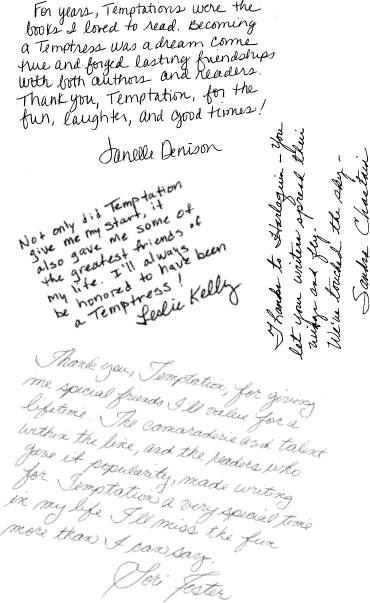 For years, Temptations were the
books I loved to read. Becoming
a Temptress was a dream come
true and forged lasting friendships
with both authors and readers.
Thank you, Temptation, for the
fun, laughter, and good times!
Janelle Denison
Not only did Temptation
give me my start, it
also gave me some of
the greatest friends of
my life. I'll always
be honored to have been
a Temptress!
Leslie Kelly
Thanks to Harlequin - You
let your writers spread their
wings and fly.
We've touched the sky -
Sandra Chastain
Thank you, Temptation, for giving
me special friends I'll value for a
lifetime. The camaraderie and talent
within the line, and the readers who
gave it popularity, made writing
for Temptation a very special time
in my life. I'll miss the fun
more than I can say.
Lori Foster